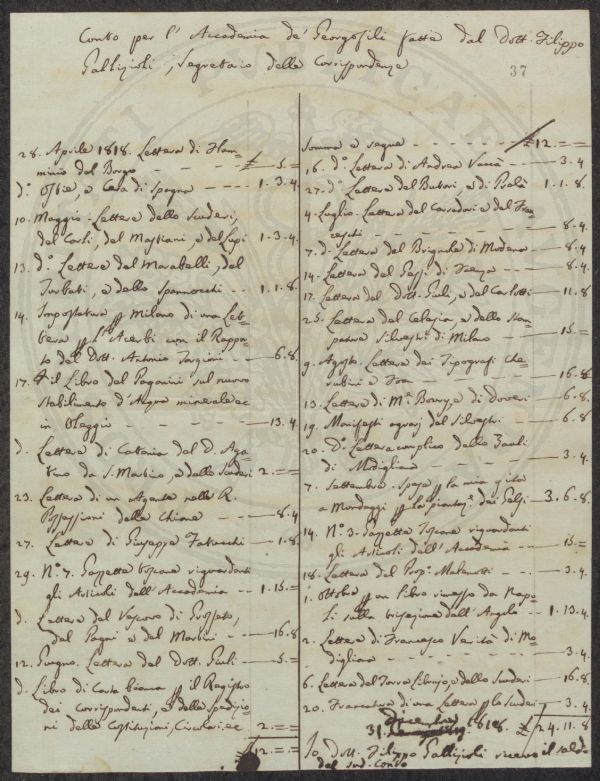 Conto per l'Accademia de' Georgofili fatto dal Dott. Filippo
Gallizioli, Segretario delle Corrispondenze
37
28. Aprile 1818. Lettera di Flam-
minio dal Borgo - - £ 5. =
d.° Ofizie, e Casa di Spagna - - - 1. 3. 4.
10. Maggio. Lettera dello Scuderi,
del Carli, del Mastiani, e del Lupi 1. 3. 4.
13. d.° Lettera del Marabelli, del
Turbati, e dello Spannocchi - - 1. 1. 8.
14. Impostatura p Milano di una Let-
tera p l'Acerbi con il Rappor-
to del Dott. Antonio Targioni - - 6. 8.
17. P il Libro del Paganini sul nuovo
stabilimento d'Acque minerali ec
in Oleggio - - - 13. 4.
d. Lettera di Catania del D. Aga-
tino da S. Martino, e dello Scuderi 2. = =
23. Lettera di un Agente nelle R.
Possessioni della Chiana - - 8. 4
27. Lettera di Giuseppe - 1. 8.
29. N.° 7. Gazzette toscane riguardanti
gli Articoli dell'Accademia - - 1. 15. =
d. Lettera del Vescovo di Grosseto,
del Pagni e del Martini - - 16. 8
12. Giugno. Lettera del Dott. Giuli - - 5. =
d. Libro di Carta bianca p il Registro
dei corrispondenti, e della spedizio-
ni delle Costituzioni, Circolari, ec 2. = =
£ 12. = =
Somma e segue - - £ 12. = =
16. d.° Lettera di Andrea Vaccà - - 3. 4
27. d.° Lettera del Butori, e di Psalà 1. 1. 8.
4. Luglio. Lettera del Corradori e del Fran
ceschi - - - 8. 4.
7. d.° Lettera del Brignole di Modena - 8. 4
14. Lettera del Gessi di Faenza - - 8. 4.
17. Lettera del Dott. Giuli, e del Carlotti - 11. 8
25. Lettera del Celesia, e dello Stam-
patore Silvestri di Milano - - 15. =
9. Agosto. Lettera dei Tipografi Che-
rubini e - - - 16. 8.
13. Lettera di M.r di Doveri - 6. 8.
19. Manifesti del Silvestri - - 6. 8
20. D.° Lettera complico dello Zauli
di Modigliana - - - 3. 4.
7. Settembre. Spese p la mia gita
a Mondeggi p la piantaz.e dei Gelsi - 3. 6. 8
14. N.° 3. Gazzette Toscane riguardanti
gli Articoli dell'Accademia - - 15. =
18. Lettera del Prop.° Malenotti - - 3. 4.
1. Ottobre p un Libro rimesso da Napo-
li sulla trisezione dell'Angolo - - 1. 13. 4.
2. Lettera di Francesco Verità di Mo-
digliana - - - 3. 4.
6. Lettera del Torre Librajo, e dello Scuderi - 16. 8.
20. Francatura di una Lettera p lo Scuderi - 3. 4.
31. Dicembre 1818. £ 24. 11. 8
Io Dott. Filippo Gallizioli ricevo il saldo
del sud. Conto